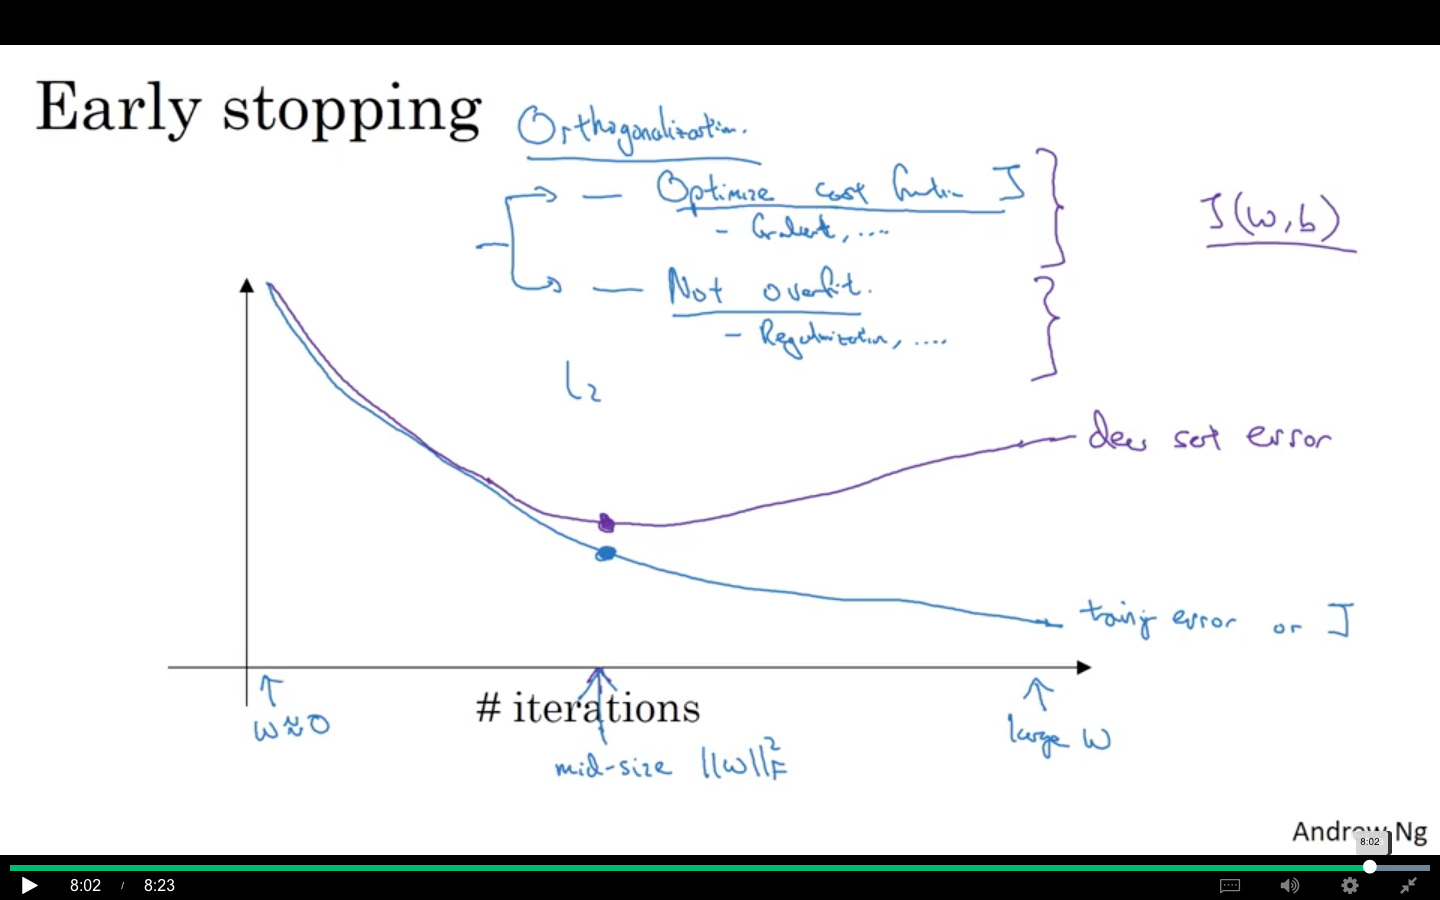 Early stopping
Orthogonalization.
— Optimize cost function J
- Gradient, ....
J(w,b)
— Not overfit.
- Regularization, ....
L2
dev set error
training error or J
# iterations
w≈0
mid-size ||w||²F
large w
Andrew Ng
8:02
8:02 / 8:23